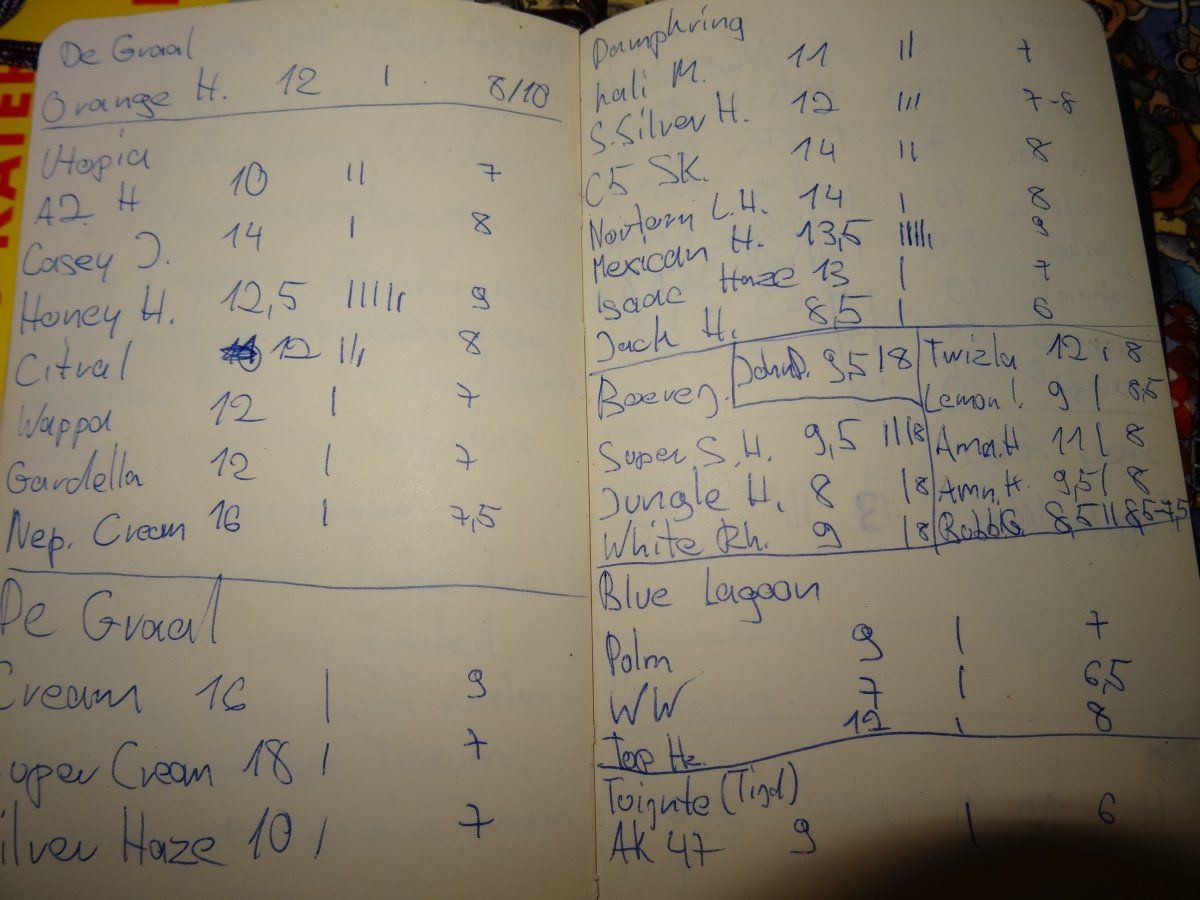 De Graal
Orange H. 12 | 8/10
Utopia
AZ. H 10 || 7
Casey J. 14 | 8
Honey H. 12,5 |||||| 9
Citral 12 ||| 8
Wappa 12 | 7
Gardella 12 | 7
Nep. Cream 16 | 7,5
De Graal
Cream 16 | 9
Super Cream 18 | 7
Silver Haze 10 | 7
Dampkring
Kali M. 11 || 7
S.Silver H. 12 ||| 7-8
C5 SK. 14 || 8
Nortern L.H. 14 | 8
Mexican H. 13,5 |||||| 9
Isaac Haze 13 | 7
Jack H. 8,5 | 6
Boerej.
9,5 | 8
Super S.H. 9,5 ||| 8
Jungle H. 8 | 8
White Rh. 9 | 8
Twizla 12 | 8
Lemon 9 | 8,5
Ama.H 11 | 8
Amn.H. 9,5 | 8
BubbG. 8,5 || 8,5-7,5
Blue Lagoon
Polm 9 | 7
WW 7 | 6,5
Top Hz. 12 | 8
(Tijd)
AK 47 9 | 6